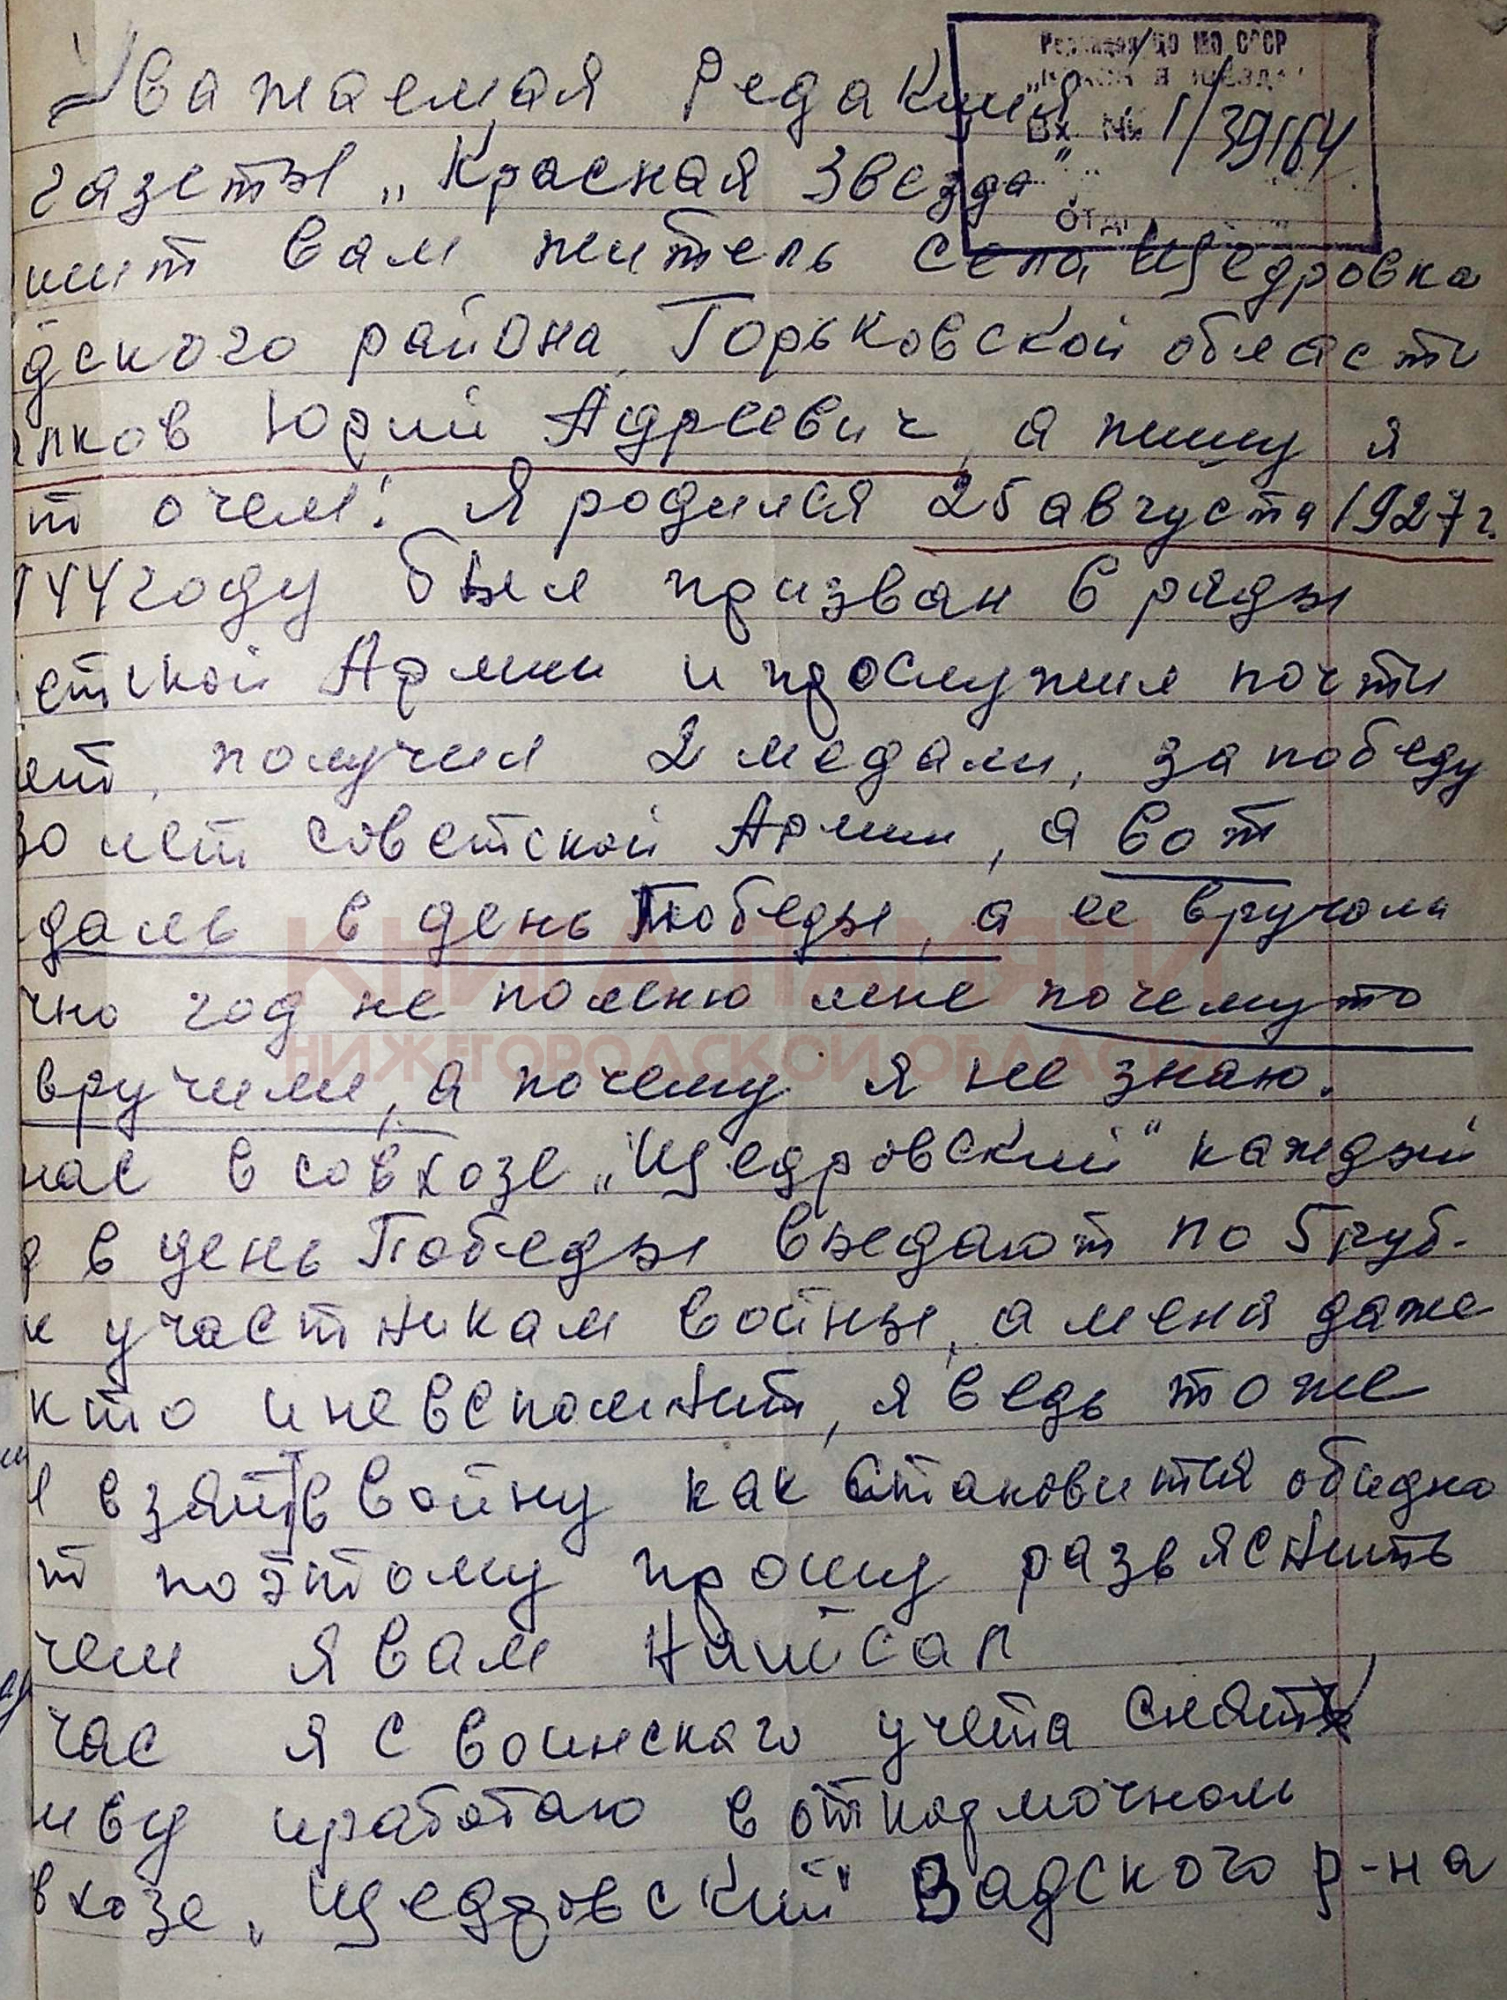 Уважаемая Редакция
газеты „Красная Звезда"
Редакция ЦО МО СССР
Вх. № 1/39164
шит вам житель села Щедровка
дского района, Горьковской области
лков Юрий Адреевич, а пишу я
т очем: Я родился 25 августа 1927 г.
944 году был призван в ряды
етской Армии и прослужил почти
ет, получил 2 медали, за победу
30 лет советской Армии, а вот
даль в день Победы, а ее вручали
чно год не помню мне почемуто
вручили, а почему я не знаю.
нас в совхозе „Щедровский" каждый
д в день Победы выдают по 5 руб.
к участникам войны, а меня даже
кто и невспомнит, я ведь тоже
л взят в войну как становится обидно
т поэтому прошу развяснить
чем я вам написал
час я с воинского учета снят
иву иработаю в откормочном
вхозе „Щедровский" Вадского р-на
КНИГА ПАМЯТИ
НИЖЕГОРОДСКОЙ ОБЛАСТИ